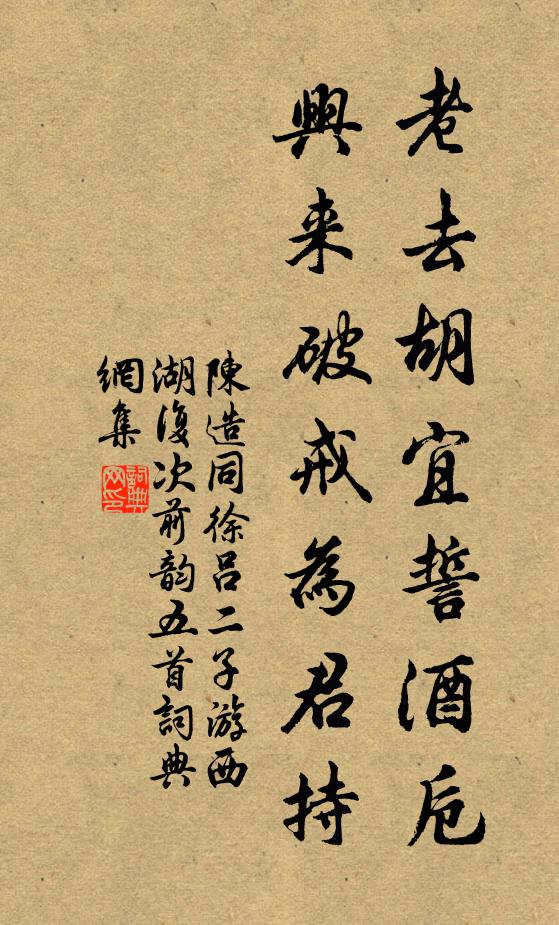 老去胡宜誓酒卮
興来破戒為君持
陳造同徐呂二子游西
湖復次前韵五首詞典
網集
詞典
网印